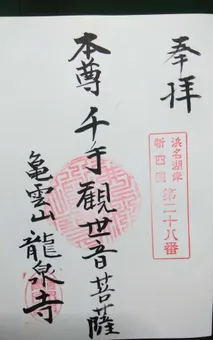 奉拝
浜名湖岸
新四国 第二十八番
本尊千手觀世音菩薩
亀雲山龍泉寺